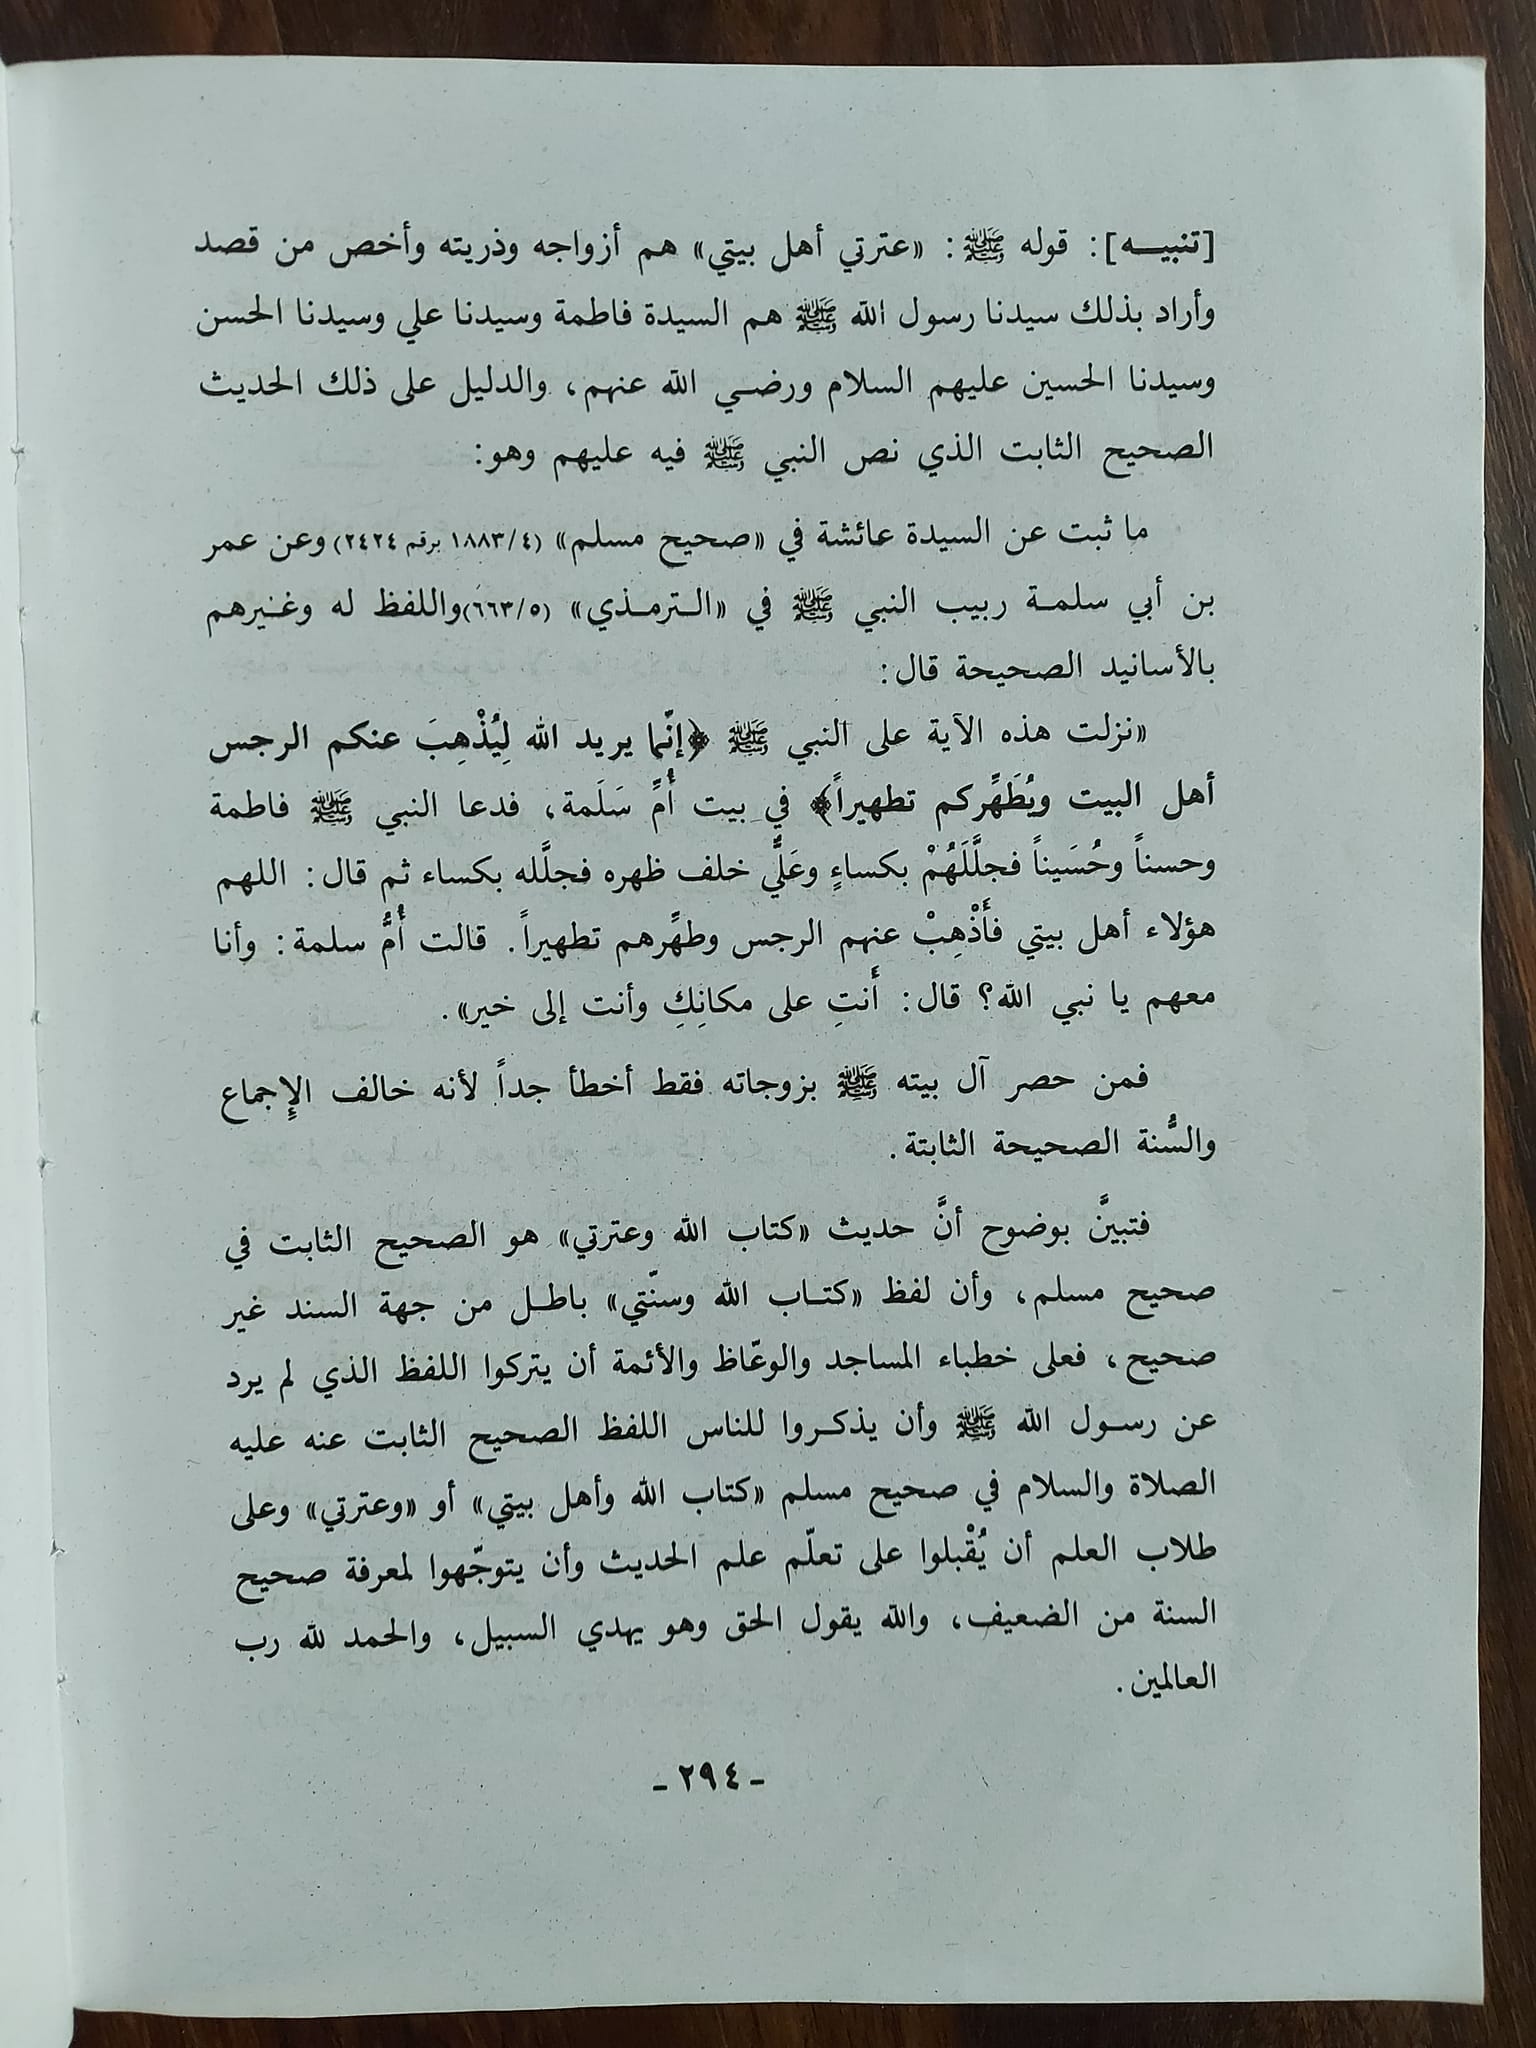 [تنبيـــه]: قوله ﷺ: «عترتي أهل بيتي» هم أزواجه وذريته وأخص من قصد
وأراد بذلك سيدنا رسول الله ﷺ هم السيدة فاطمة وسيدنا علي وسيدنا الحسن
وسيدنا الحسين عليهم السلام ورضـي الله عنهم، والدليل على ذلك الحديث
الصحيح الثابت الذي نص النبي ﷺ فيه عليهم وهو:
ما ثبت عن السيدة عائشة في «صحيح مسلم» (١٨٨٣/٤ برقم ٢٤٢٤) وعن عمر
بن أبي سلمـة ربيب النبي ﷺ في «الـترمـذي» (٦٦٣/٥)واللفظ له وغـيرهم
بالأسانيد الصحيحة قال:
«نزلت هذه الآية على النبي ﷺ ﴿إنّما يريد الله لِيُذْهِبَ عنكم الرجس
أهل البيت ويُطَهِّركم تطهيراً﴾ في بيت أُمِّ سَلَمة، فدعا النبي ﷺ فاطمة
وحسناً وحُسَيناً فجلَّلَهُمْ بكساءٍ وعَليٌّ خلف ظهره فجلَّله بكساء ثم قال: اللهم
هؤلاء أهل بيتي فأَذْهِبْ عنهم الرجس وطهِّرهم تطهيراً. قالت أُمُّ سلمة: وأنا
معهم يا نبي الله؟ قال: أَنتِ على مكانِكِ وأنت إلى خير».
فمن حصر آل بيته ﷺ بزوجاته فقط أخطأ جداً لأنه خالف الإِجماع
والسُّنة الصحيحة الثابتة.
فتبينَّ بوضوح أنَّ حديث «كتاب الله وعترتي» هو الصحيح الثابت في
صحيح مسلم، وأن لفظ «كتـاب الله وسنّتي» باطـل من جهة السند غير
صحيح، فعلى خطباء المساجد والوعّاظ والأئمة أن يتركوا اللفظ الذي لم يرد
عن رسـول الله ﷺ وأن يذكـروا للناس اللفظ الصحيح الثابت عنه عليه
الصلاة والسلام في صحيح مسلم «كتاب الله وأهل بيتي» أو «وعترتي» وعلى
طلاب العلم أن يُقْبلوا على تعلّم علم الحديث وأن يتوجّهوا لمعرفة صحيح
السنة من الضعيف، والله يقول الحق وهو يهدي السبيل، والحمد لله رب
العالمين.
- ٢٩٤ -